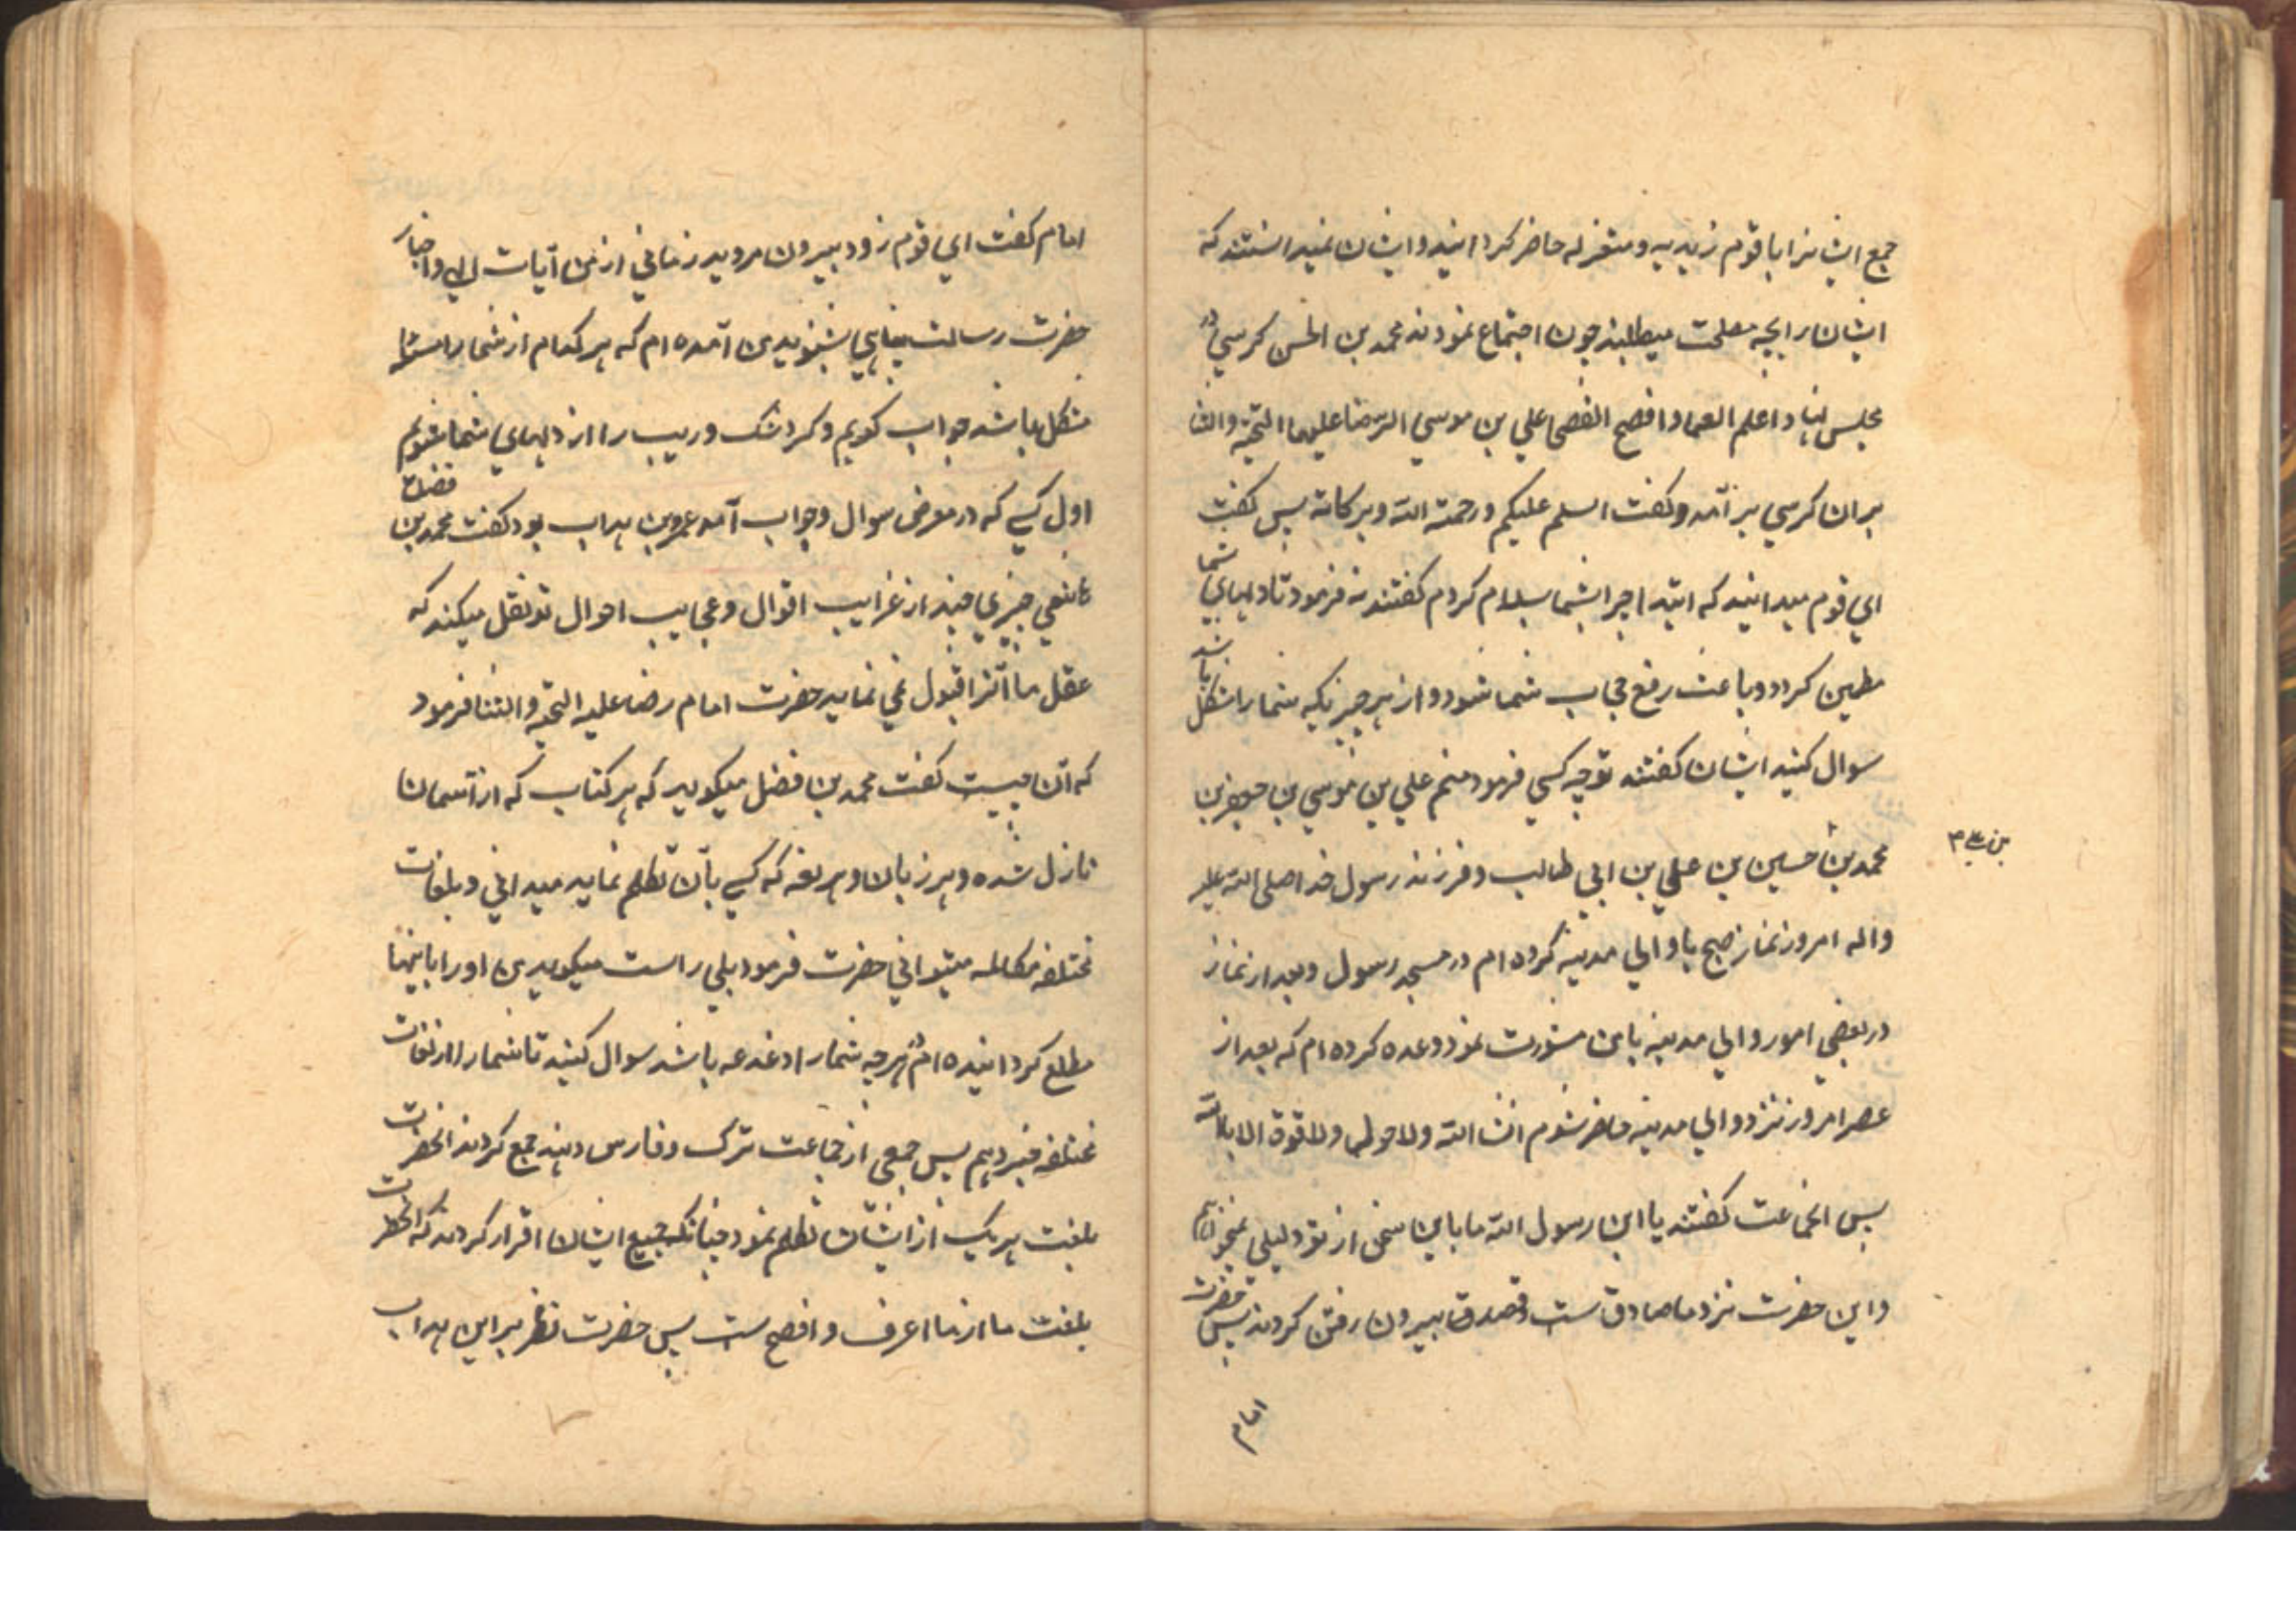 جمع ایشانرا با قوم زیدیه و معتزله حاضر کردانید و ایشان نمیدانستند که
ایشان را بچه مصلحت میطلبند چون اجتماع نمودند محمد بن الحسن کرسي در
مجلس نهاد اعلم العما و افصح الفصحا علي بن موسي الرضا علیهما التحیة والثنا
بر ان کرسي بر آمد و کفت السلم علیکم ورحمة الله وبرکاته پس کفت
اي قوم میدانید که ابتدا چرا بشما سلام کردم کفتند نه فرمود تا دلهاي شما
مطمین کردد و باعث رفع حجاب شما شود و از هر چیزیکه شما را مشکل باشد
سوال کنید ایشان کفتند تو چه کسي فرمود منم علي بن موسي بن جعفر بن
محمد بن حسین بن علي بن ابي طالب و فرزند رسول خدا صلی الله علیه
بن علي
واله امروز نماز صبح با والي مدینه کرده ام در مسجد رسول و بعد از نماز
در بعضي امور والي مدینه با من مشورت نمود وعده کرده ام که بعد از
عصر امروز نزد والي مدینه حاضر شوم انشا الله ولا حول ولا قوة الا بالله
پس انجماعت کفتند یا ابن رسول الله ما باین سخن از تو دلیلي نمیخواهیم
و این حضرت نزد ما صادق ست و قصد بیرون رفتن کردند پس حضرت
امام
امام کفت اي قوم زود بیرون مروید زماني از من آیات الهي و اخبار
حضرت رسالت پناهي بشنوید من آمده ام که هر کدام از شما را
مشکل باشد جواب کویم و کرد شک و ریب را از دلهاي شما بشویم
اول کسي که در معرض سوال و جواب آمد عمرو بن هداب بود کفت محمد بن فضل
هاشمي چیزي چند از غرایب اقوال و عجایب احوال تو نقل میکند که
عقل ما آنرا قبول نمي نماید حضرت امام رضا علیه التحیه و الثنا فرمود
که آن چیست کفت محمد بن فضل میکوید که هر کتاب که از آسمان
نازل شده و هر زبان و هر لغه که کسي بآن تکلم نماید میداني و بلغات
مختلفه مکالمه میتواني حضرت فرمود بلي راست میکوید من او را باینها
مطلع کردانیده ام هر چه شما را دغدغه باشد سوال کنید تا شما را از لغات
مختلفه خبر دهم پس جمعي از جماعت ترک و فارس و هند جمع کردند انحضرت
بلغت هر یک از ایشان تکلم نمود چنانکه جمیع ایشان اقرار کردند که انحضرت
بلغت ما از ما اعرف و افصح ست پس حضرت نظر بر ابن هداب